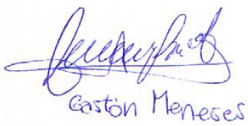 Gastón Meneses